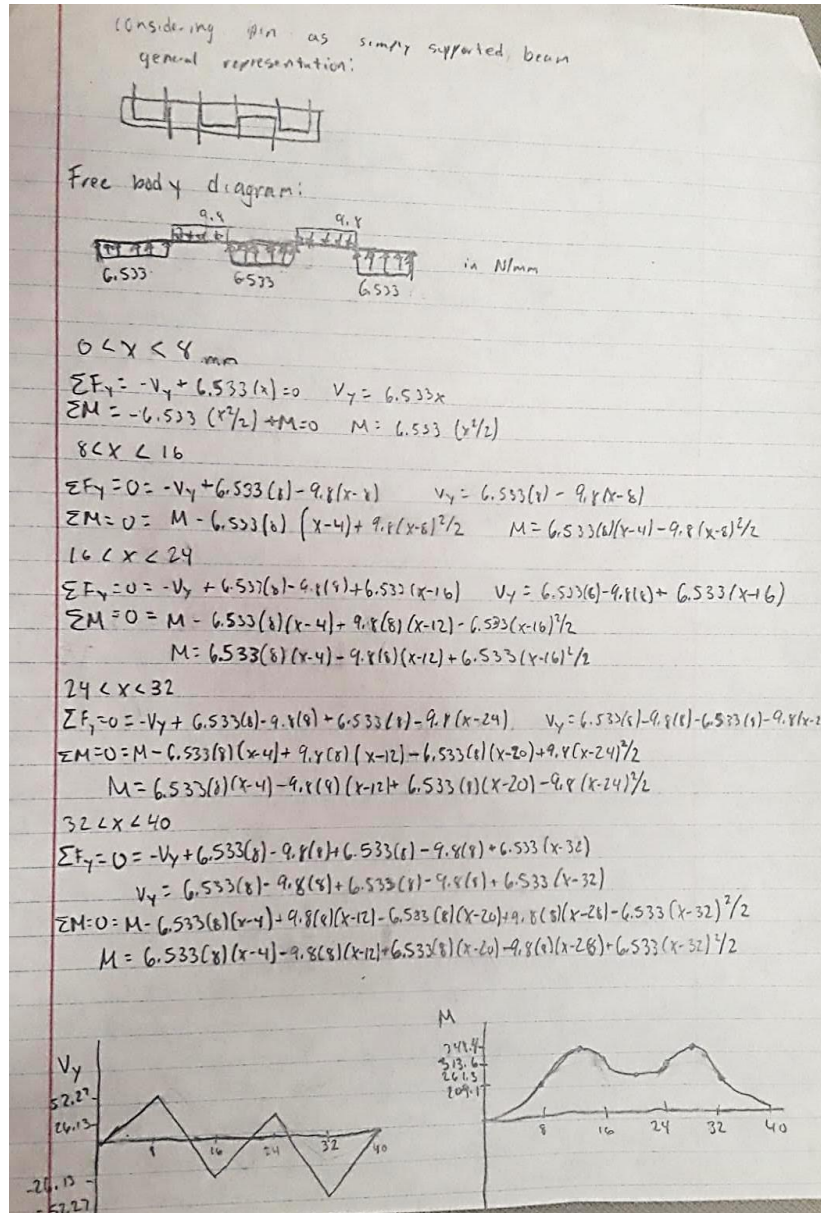 Considering pin as simply supported beam
general representation:
Free body diagram:
9.8 9.8
6.533 6533 6.533 in N/mm
0<x<8 mm
ΣFy = -Vy + 6.533(x)=0 Vy = 6.533x
ΣM = -6.533 (x²/2) +M=0 M= 6.533 (x²/2)
8<x<16
ΣFy =0= -Vy +6.533(8)-9.8(x-8) Vy = 6.533(8) - 9.8(x-8)
ΣM=0= M-6.533(8) (x-4)+9.8(x-8)²/2 M=6.533(8)(x-4)-9.8(x-8)²/2
16<x<24
ΣFy=0= -Vy + 6.533(8)-9.8(8)+6.533(x-16) Vy = 6.533(8)-9.8(8)+ 6.533(x-16)
ΣM=0 = M - 6.533(8)(x-4)+ 9.8(8)(x-12)-6.533(x-16)²/2
M= 6.533(8)(x-4)-9.8(8)(x-12)+6.533(x-16)²/2
24<x<32
ΣFy=0= -Vy+ 6.533(8)-9.8(8)+6.533(8)-9.8(x-24) Vy=6.533(8)-9.8(8)-6.533(8)-9.8(x-2
ΣM=0=M-6.533(8)(x-4)+ 9.8(8)(x-12)-6.533(8)(x-20)+9.8(x-24)²/2
M= 6.533(8)(x-4)-9.8(8)(x-12)+ 6.533(8)(x-20)-9.8(x-24)²/2
32<x<40
ΣFy=0= -Vy+6.533(8)-9.8(8)+6.533(8)-9.8(8)+6.533(x-32)
Vy= 6.533(8)-9.8(8)+6.533(8)-9.8(8)+6.533(x-32)
ΣM=0=M-6.533(8)(x-4)+9.8(8)(x-12)-6.533(8)(x-20)+9.8(8)(x-28)-6.533(x-32)²/2
M= 6.533(8)(x-4)-9.8(8)(x-12)+6.533(8)(x-20)-9.8(8)(x-28)+6.533(x-32)²/2
Vy
52.27
26.13
8 16 24 32 40
-26.13
-52.27
M
348.4
313.6
261.3
209.1
8 16 24 32 40